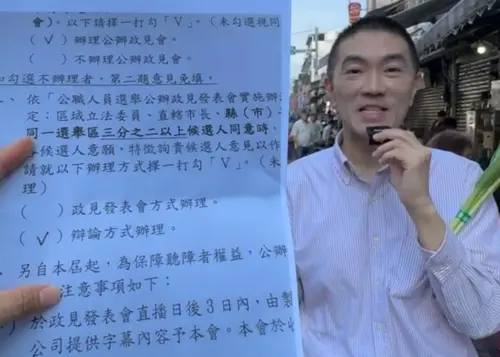 會)。以下請擇一打勾「V」。(未勾選視同
(V)辦理公辦政見會。
( )不辦理公辦政見會。
勾選不辦理者,第二題意見免填。
、依「公職人員選舉公辦政見發表會實施辦
定:區域立法委員、直轄市長、縣(市)
同一選舉區三分之二以上候選人同意時,
候選人意願,特徵詢貴候選人意見以作
請就以下辦理方式擇一打勾「V」。(未
理)
( )政見發表會方式辦理。
(V)辯論方式辦理。
、另自本屆起,為保障聽障者權益,公辦
注意事項如下:
)於政見發表會直播日後3日內,由製
公司提供字幕內容予本會。本會於